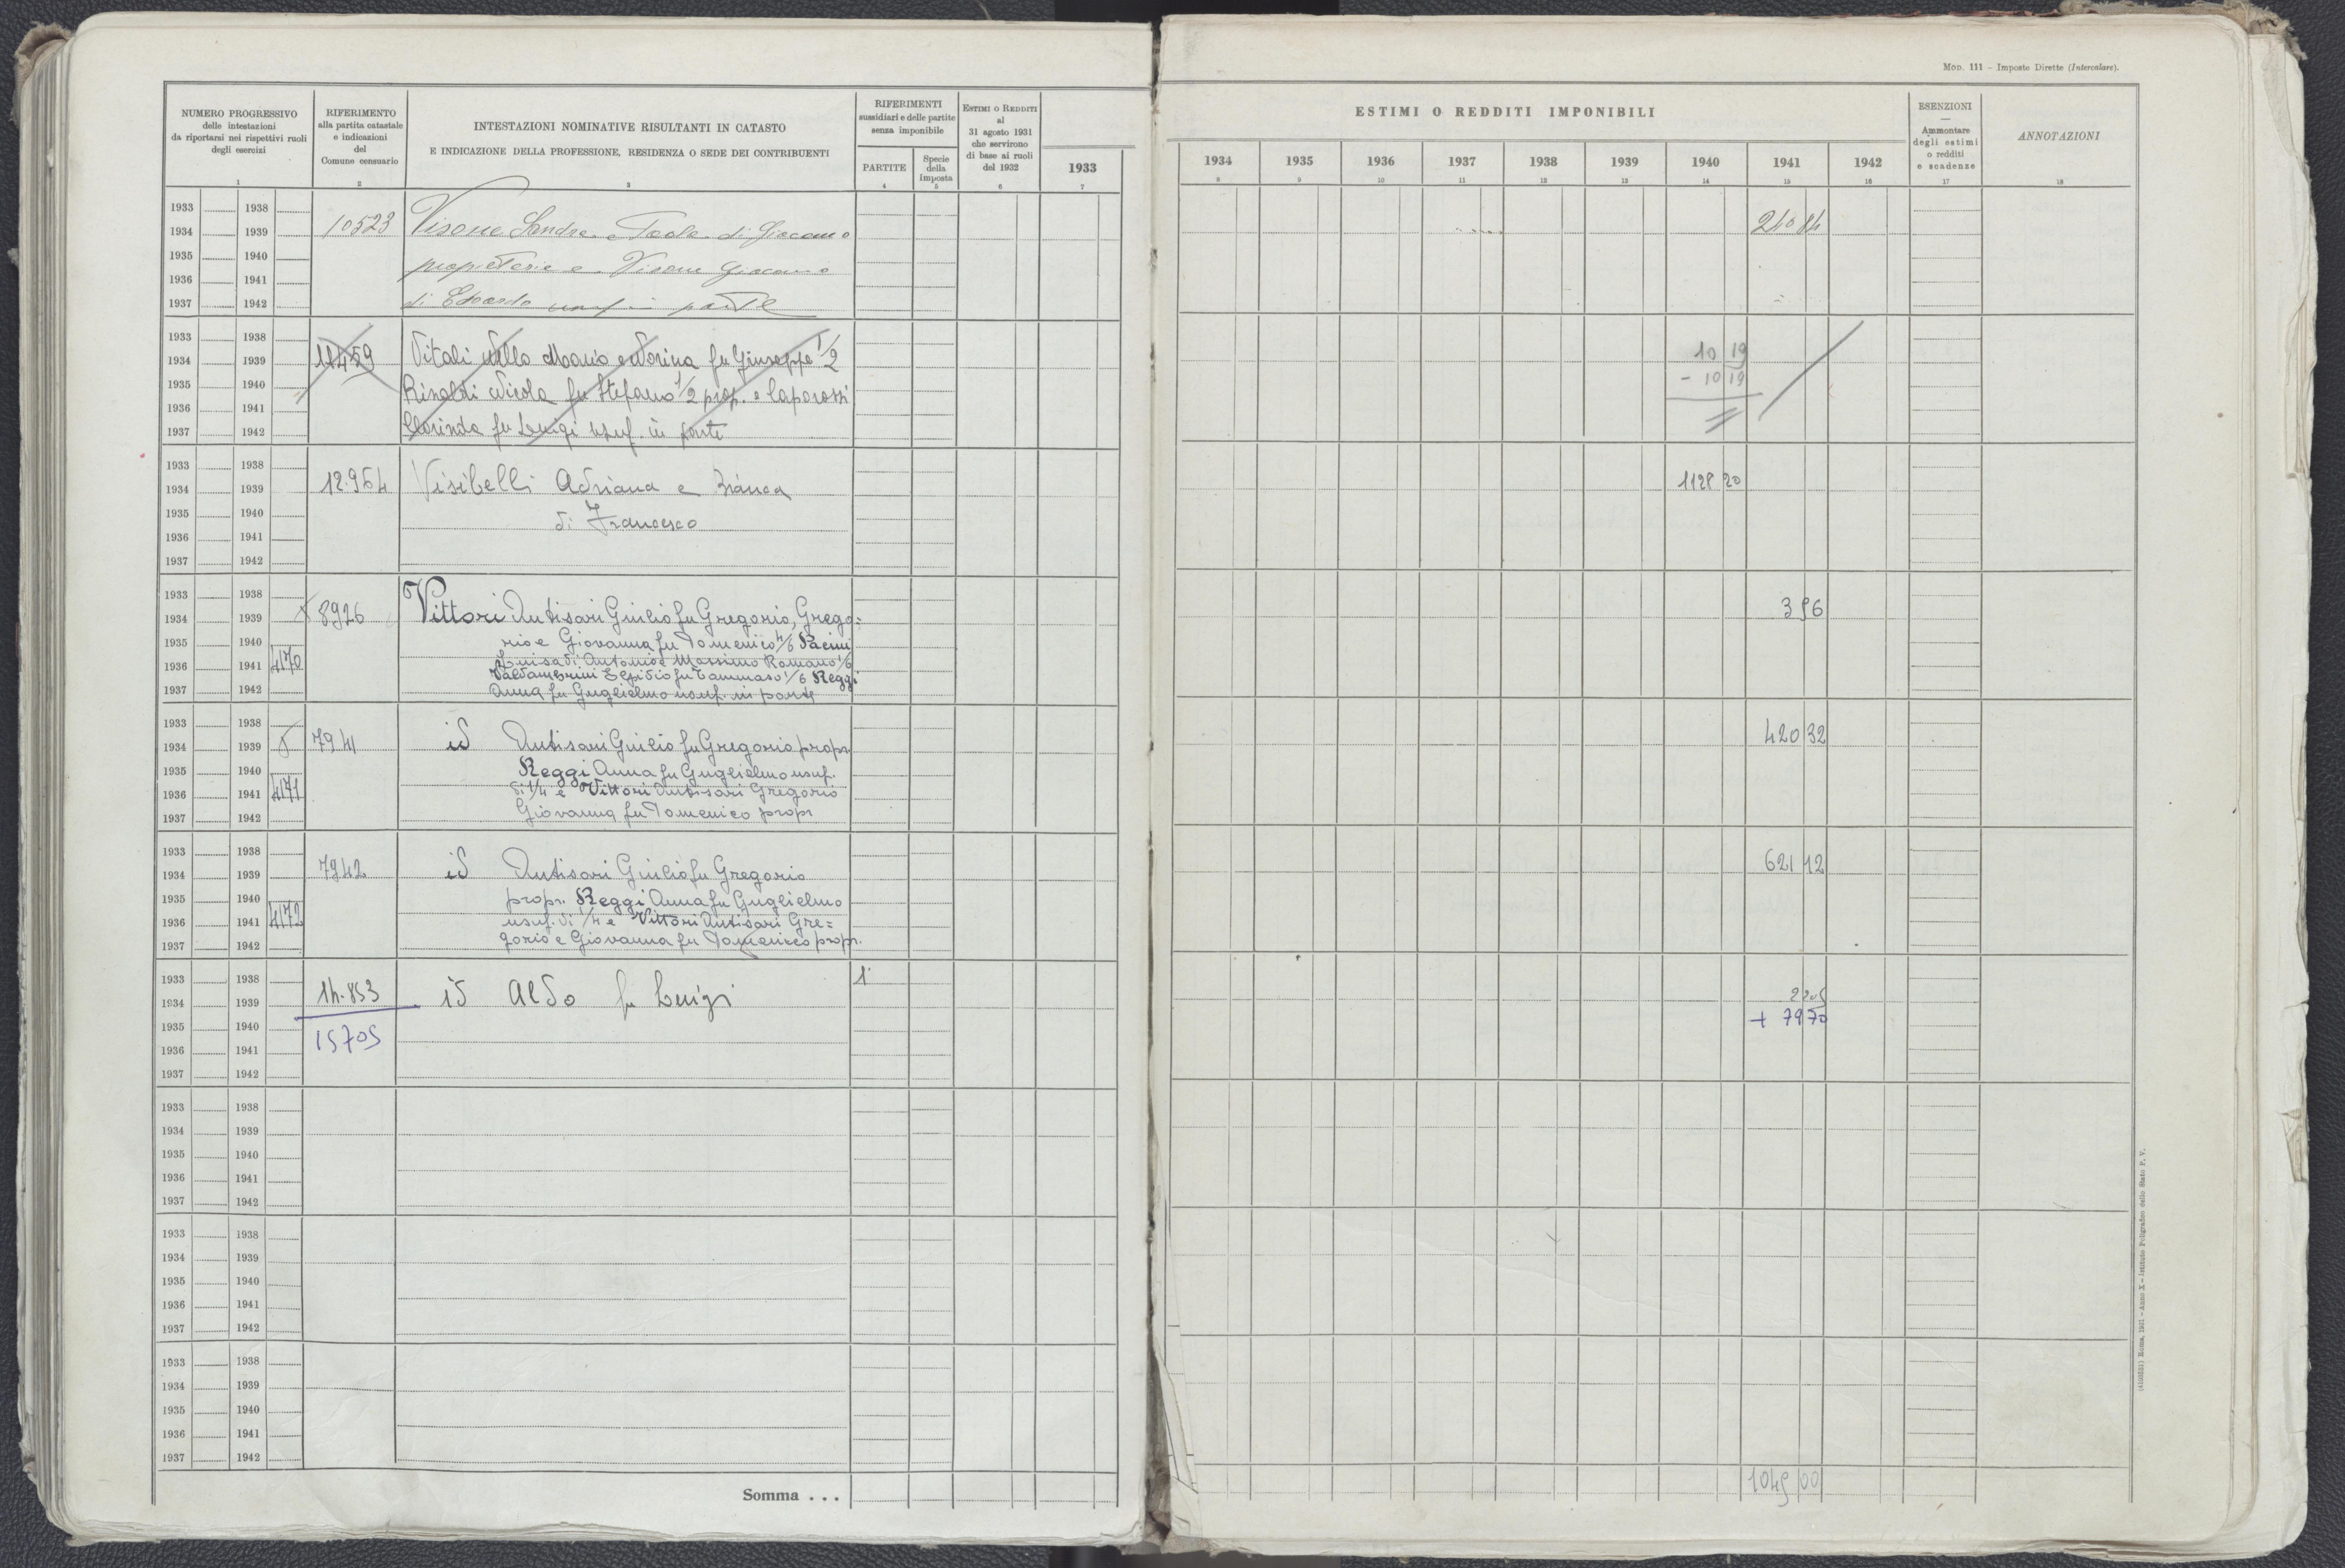 Mod. 111 – Imposte Dirette (Intercalare).
NUMERO PROGRESSIVO
delle intestazioni
da riportarsi nei rispettivi ruoli
degli esercizi
1
RIFERIMENTO
alla partita catastale
e indicazioni
del
Comune censuario
2
INTESTAZIONI NOMINATIVE RISULTANTI IN CATASTO
E INDICAZIONE DELLA PROFESSIONE, RESIDENZA O SEDE DEI CONTRIBUENTI
3
RIFERIMENTI
sussidiari e delle partite
senza imponibile
PARTITE
4
Specie
della
imposta
5
Estimi o Redditi
al
31 agosto 1931
che servirono
di base ai ruoli
del 1932
6
1933
7
ESTIMI O REDDITI IMPONIBILI
1934 1935 1936 1937 1938 1939 1940 1941 1942
8 9 10 11 12 13 14 15 16
ESENZIONI
—
Ammontare
degli estimi
o redditi
e scadenze
17
ANNOTAZIONI
18
1933 1938
1934 1939 10523 Visone Sandra e Paola di Giacomo 240 84
1935 1940 proprietarie e Visone Giacomo
1936 1941
1937 1942 di Edoardo usuf in parte
1933 1938
1934 1939 11459 Vitali Nella Maria e Dorina fu Giuseppe 1/2 10 19
1935 1940 Rinaldi Nicola fu Stefano 1/2 prop. e Caporossi – 10 19
1936 1941
1937 1942 Clorinda fu Luigi usuf. in parte
1933 1938
1934 1939 12.964 Visibelli Adriana e Bianca 1128 20
1935 1940 di Francesco
1936 1941
1937 1942
1933 1938
1934 1939 8926 Vittori Antisari Giulio fu Gregorio, Grego= 396
1935 1940 rio e Giovanna fu Domenico 4/6 Pacini
1936 1941 4170 Luisa di Antonio e Massimo Romano 1/6
Valdambrini Egidio fu Tommaso 1/6 Reggi
1937 1942 Anna fu Guglielmo usuf. in parte
1933 1938
1934 1939 7941 id Antisari Giulio fu Gregorio propr 420 32
1935 1940 Reggi Anna fu Guglielmo usuf.
1936 1941 4171 di 1/4 e Vittori Antisari Gregorio
1937 1942 Giovanna fu Domenico propr
1933 1938
1934 1939 7942 id Antisari Giulio fu Gregorio 621 12
1935 1940 propr. Reggi Anna fu Guglielmo
1936 1941 4172 usuf. di 1/4 e Vittori Antisari Gre=
1937 1942 gorio e Giovanna fu Domenico propr.
1933 1938 1
1934 1939 14.853 id Aldo fu Luigi
1935 1940 15705 + 79 70
1936 1941
1937 1942
1933 1938
1934 1939
1935 1940
1936 1941
1937 1942
1933 1938
1934 1939
1935 1940
1936 1941
1937 1942
1933 1938
1934 1939
1935 1940
1936 1941
1937 1942
Somma . . . 1045 00
Roma, 1931 – Anno X – Istituto Poligrafico dello Stato P. V.